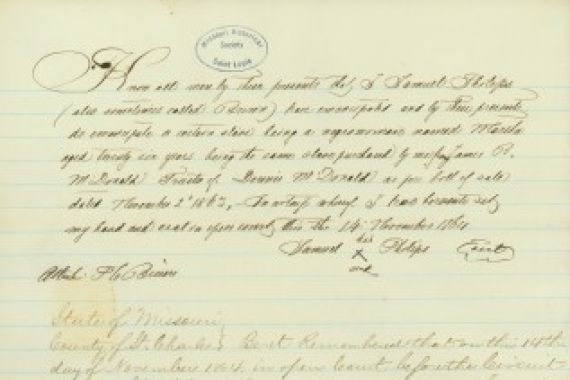 Missouri Historical
Society
Saint Louis
Know all men by these presents that I Samuel Philips
(also sometimes called Brown) have emancipated and by these presents
do emancipate a certain slave being a negro woman named Martha
aged twenty six years being the same slave purchased by me from James R.
McDonald Trustee of Dennis McDonald as per bill of sale
dated November 2d 1863, In witness whereof I have hereunto set
my hand and seal in open court this the 14 November 1864
Samuel his Philips
X
mark
State of Missouri,
County of St. Charles Be it Remembered that on this 14th
day of November 1864, in open Court, before the Circuit